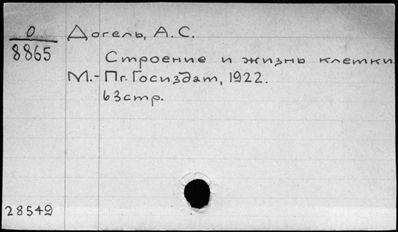 О Догель, А.С.
8865
Строение и жизнь клетки
М.-Пг. Госиздат, 1922.
63стр.
28542